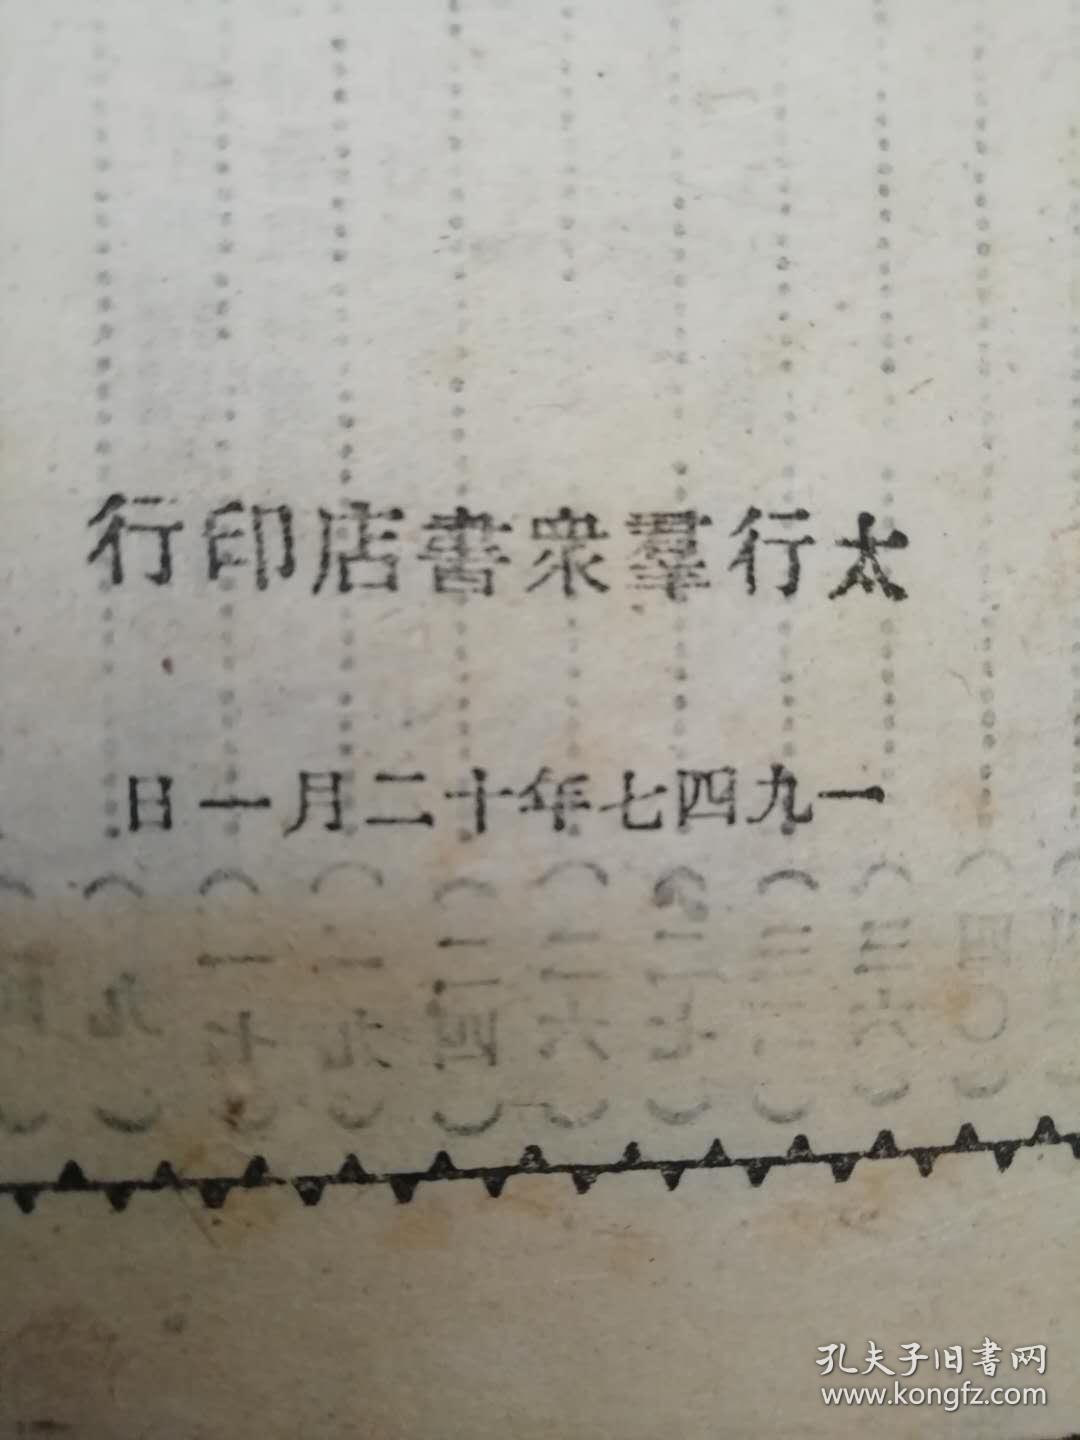 太行羣衆書店印行
一九四七年十二月一日
孔夫子旧書网
www.kongfz.com